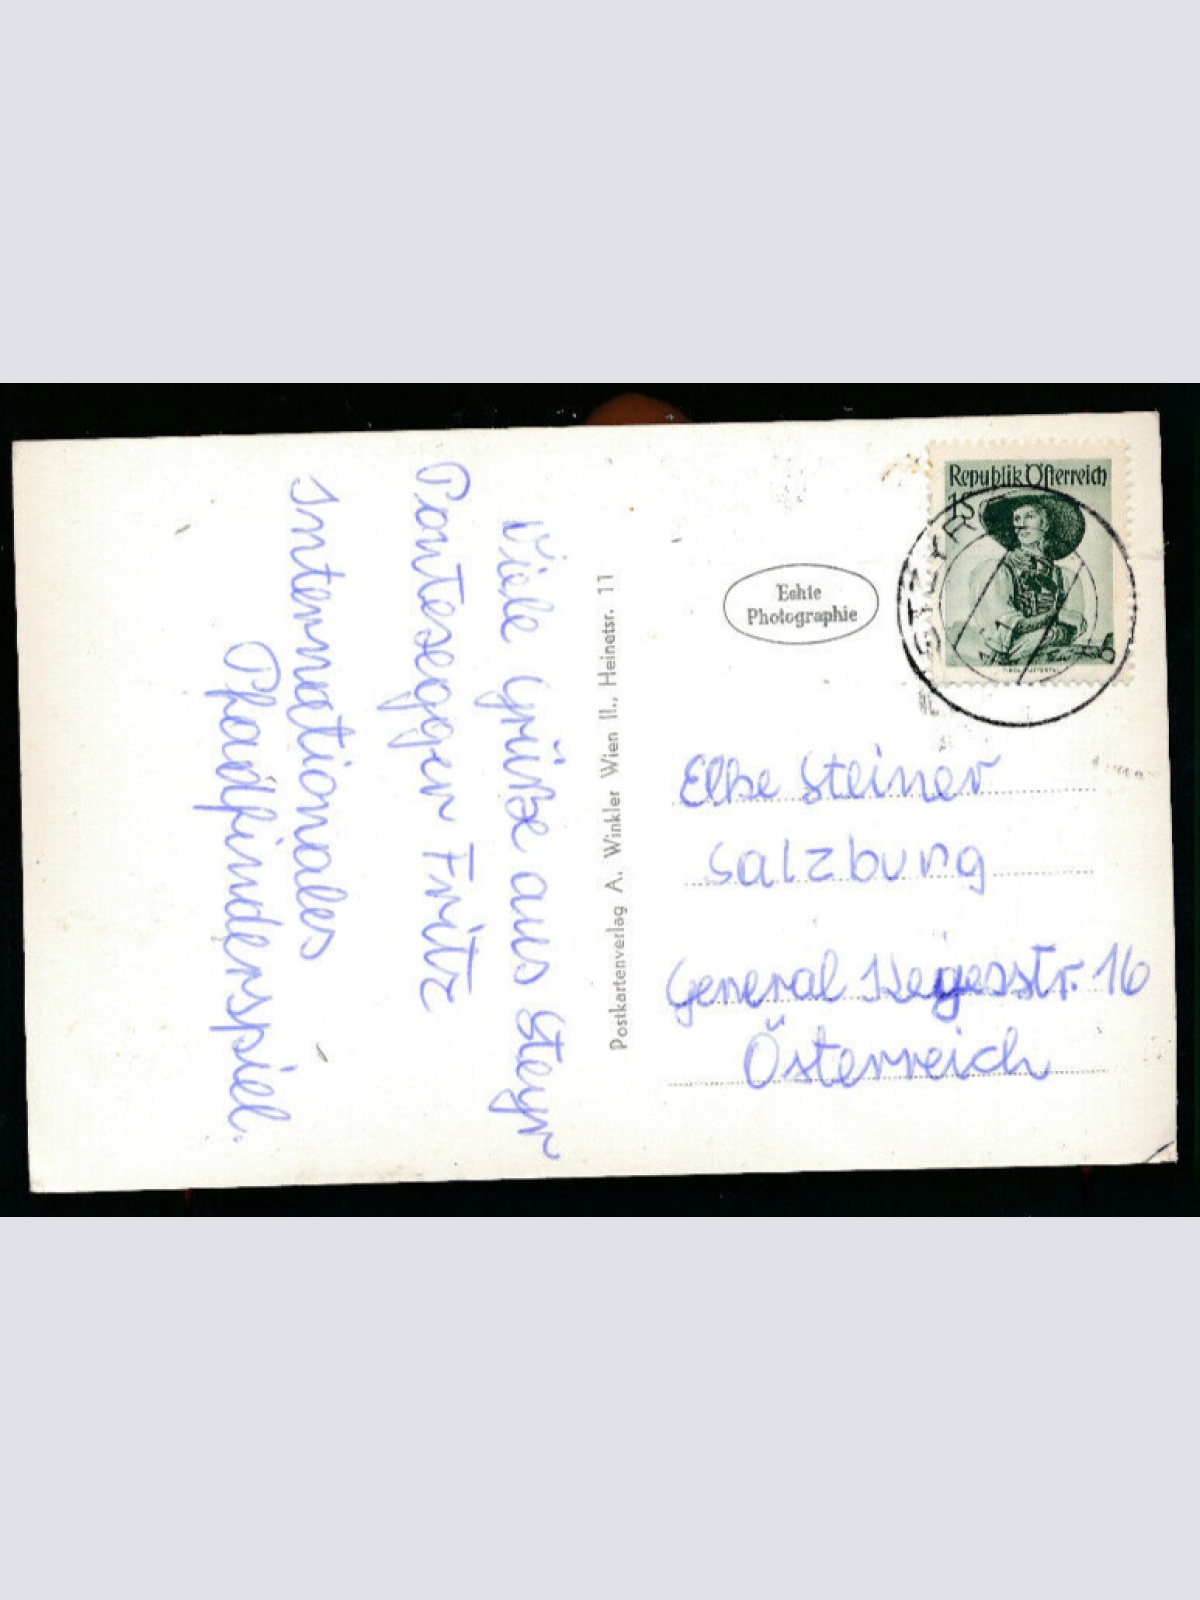 Viele Grüße aus Steyr
Pantesegger Fritz
Internationales
Pfadfinderspiel.
Postkartenverlag A. Winkler Wien II., Heinetsr. 11
Echte
Photographie
Republik Österreich
1S
STEYR
Elke Steiner
Salzburg
General Keyesstr. 16
Österreich